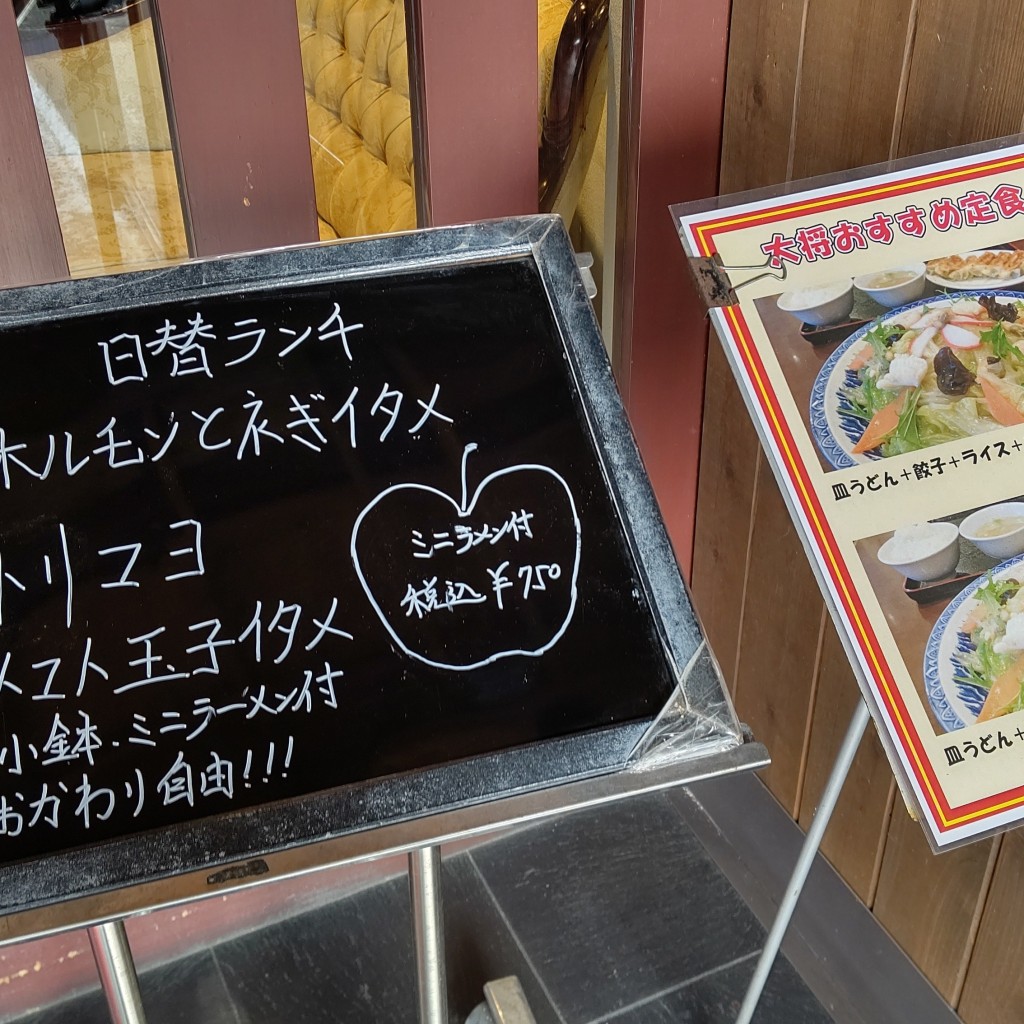 日替ランチ
ホルモンとネギイタメ
トリマヨ
トマト玉子イタメ
小鉢.ミニラーメン付
おかわり自由!!!
ミニラメン付
税込¥750
大将おすすめ定食
皿うどん+餃子+ライス+
皿うどん+